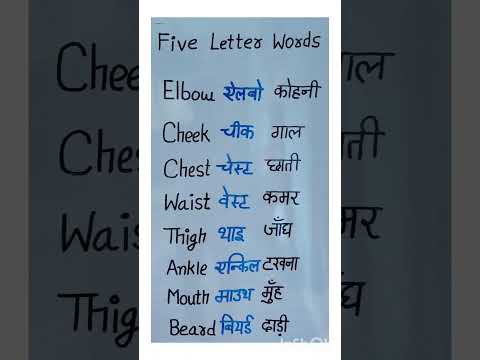 Five Letter Words
Elbow ऐलबो कोहनी
Cheek चीक गाल
Chest चेस्ट छाती
Waist वेस्ट कमर
Thigh थाइ जाँघ
Ankle एन्किल टखना
Mouth माउथ मुँह
Beard बियर्ड दाढ़ी